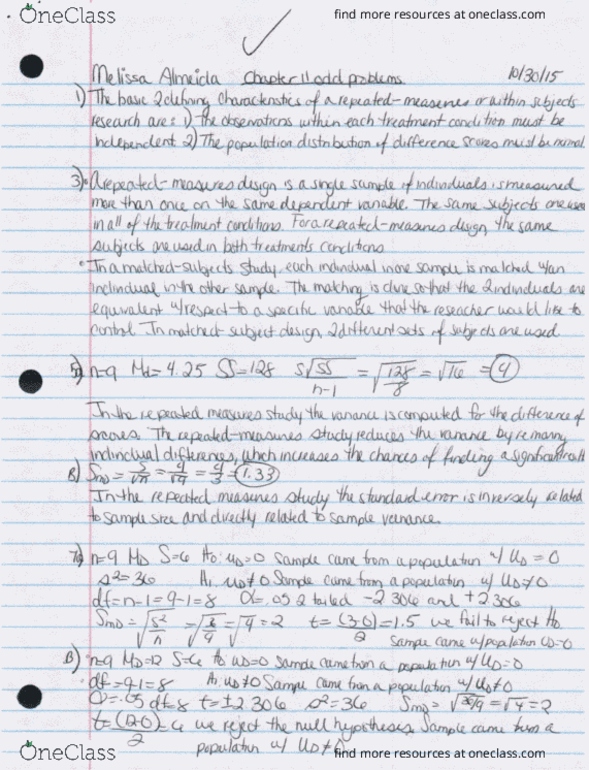 OneClass
find more resources at oneclass.com
Melissa Almeida Chapter 11 odd problems 10/30/15
1) The basic 2 defining characteristics of a repeated-measures or within subjects
research are: 1) The observations within each treatment condition must be
independent 2) The population distribution of difference scores must be normal
3) A repeated-measures design is a single sample of individuals is measured
more than once on the same dependent variable. The same subjects are used
in all of the treatment conditions. For a repeated-measures design, the same
subjects are used in both treatments conditions
• In a matched-subjects study, each individual in one sample is matched w/an
individual in the other sample. The matching is done so that the 2 individuals are
equivalent w/respect to a specific variable that the reseacher would like to
control. In matched subject design, 2 different sets of subjects are used
n=9 Md= 4.25 SS=128 s√SS/n-1 = √128/8 = √16 = 4
In the repeated measures study the variance is computed for the difference of
scores. The repeated-measures study reduces the variance by removing
individual differences, which increases the chances of finding a significant
B) Smd = s/√n = 4/√9 = 4/3 = 1.33
In the repeated measures study the standard error is inversely related
to sample size and directly related to sample variance.
n=9 MD S=6 Ho: uD=0 Sample came from a population w/ UD = 0
s²=36 H1: uD≠0 Sample came from a population w/ UD≠0
df=n-1=9-1=8 α=.05 2 tailed -2.306 and +2.306
SmD = √s²/n = √36/9 = √4 = 2 t=(3-0)/2=1.5 we fail to reject Ho
sample came w/population UD=0
B) n=9 MD=12 S=6 Ho uD=0 sample came from a population w/ UD=0
df=9-1=8 H1: uD≠0 Sample came from a population w/ UD≠0
α=.05 df=8 t=±2.306 s²=36 SmD = √36/9 = √4 = 2
t=(12-0)/2=6 we reject the null hypotheses. Sample came from a
population w/ UD≠0
OneClass
find more resources at oneclass.com